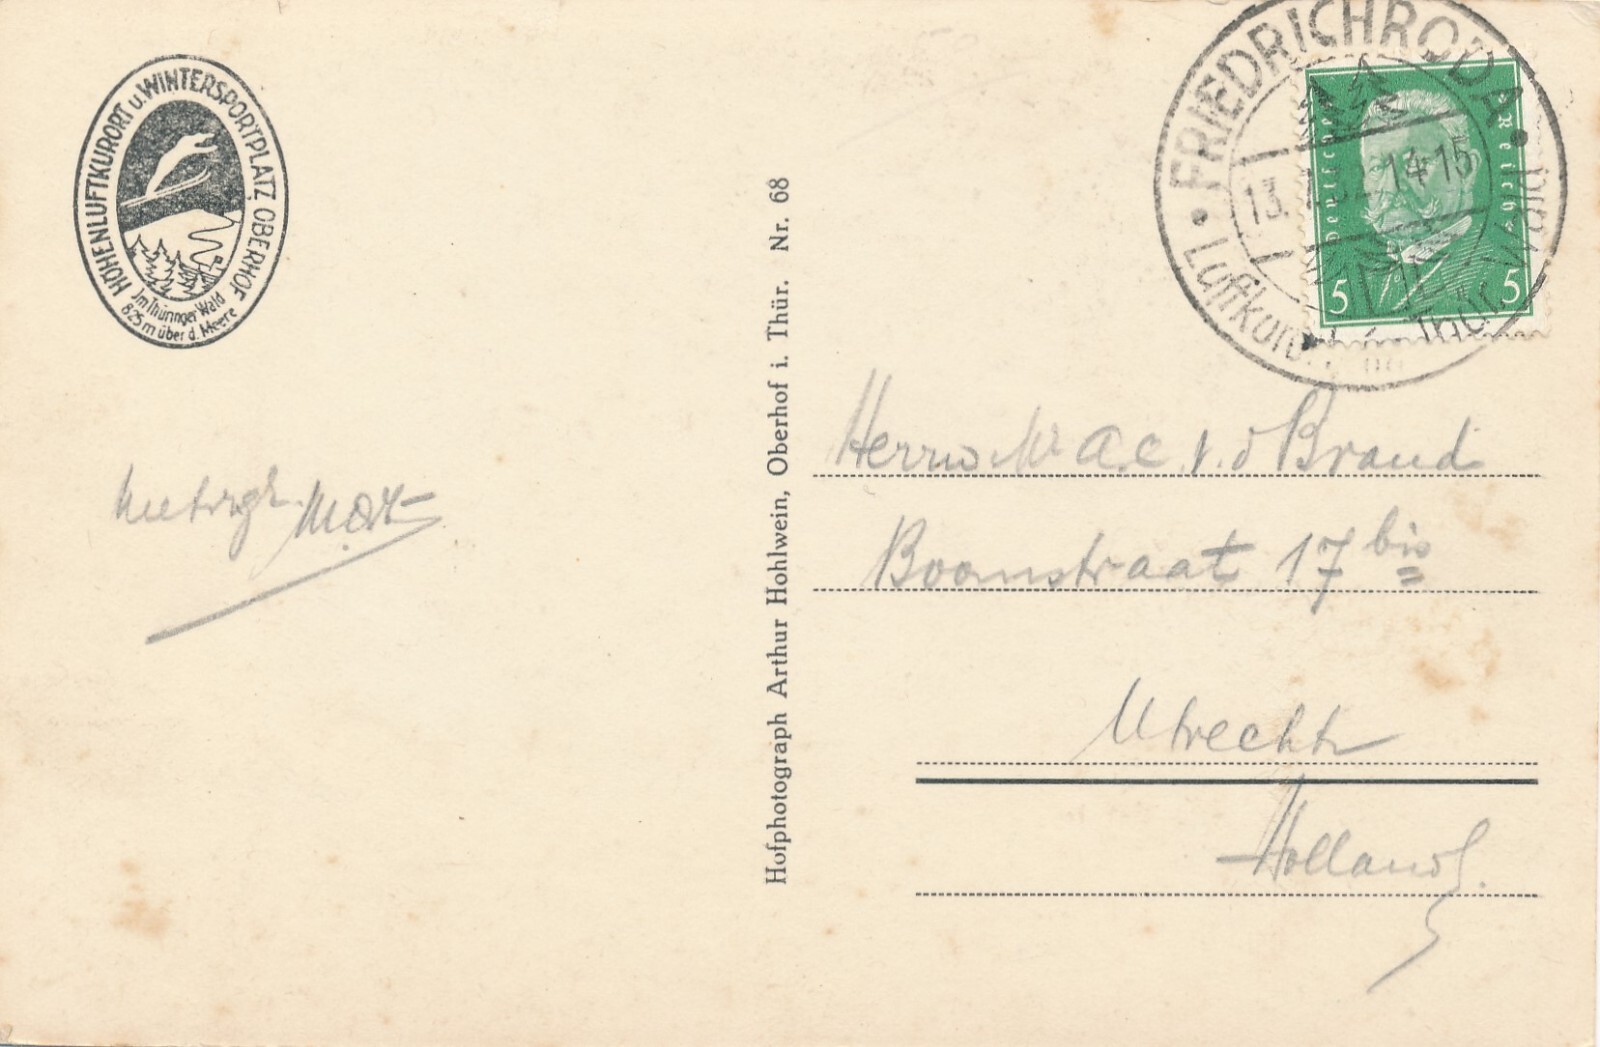 HÖHENLUFTKURORT u. WINTERSPORTPLATZ OBERHOF
Im Thüringer Wald
825 m über d. Meere
FRIEDRICHRODA
13. 14-15
Luftkurort Thür.
Deutsches Reich
5 5
Hofphotograph Arthur Hohlwein, Oberhof i. Thür. Nr. 68
A.C. v. d Brand
Boomstraat 17 bis
Utrecht
Holland.